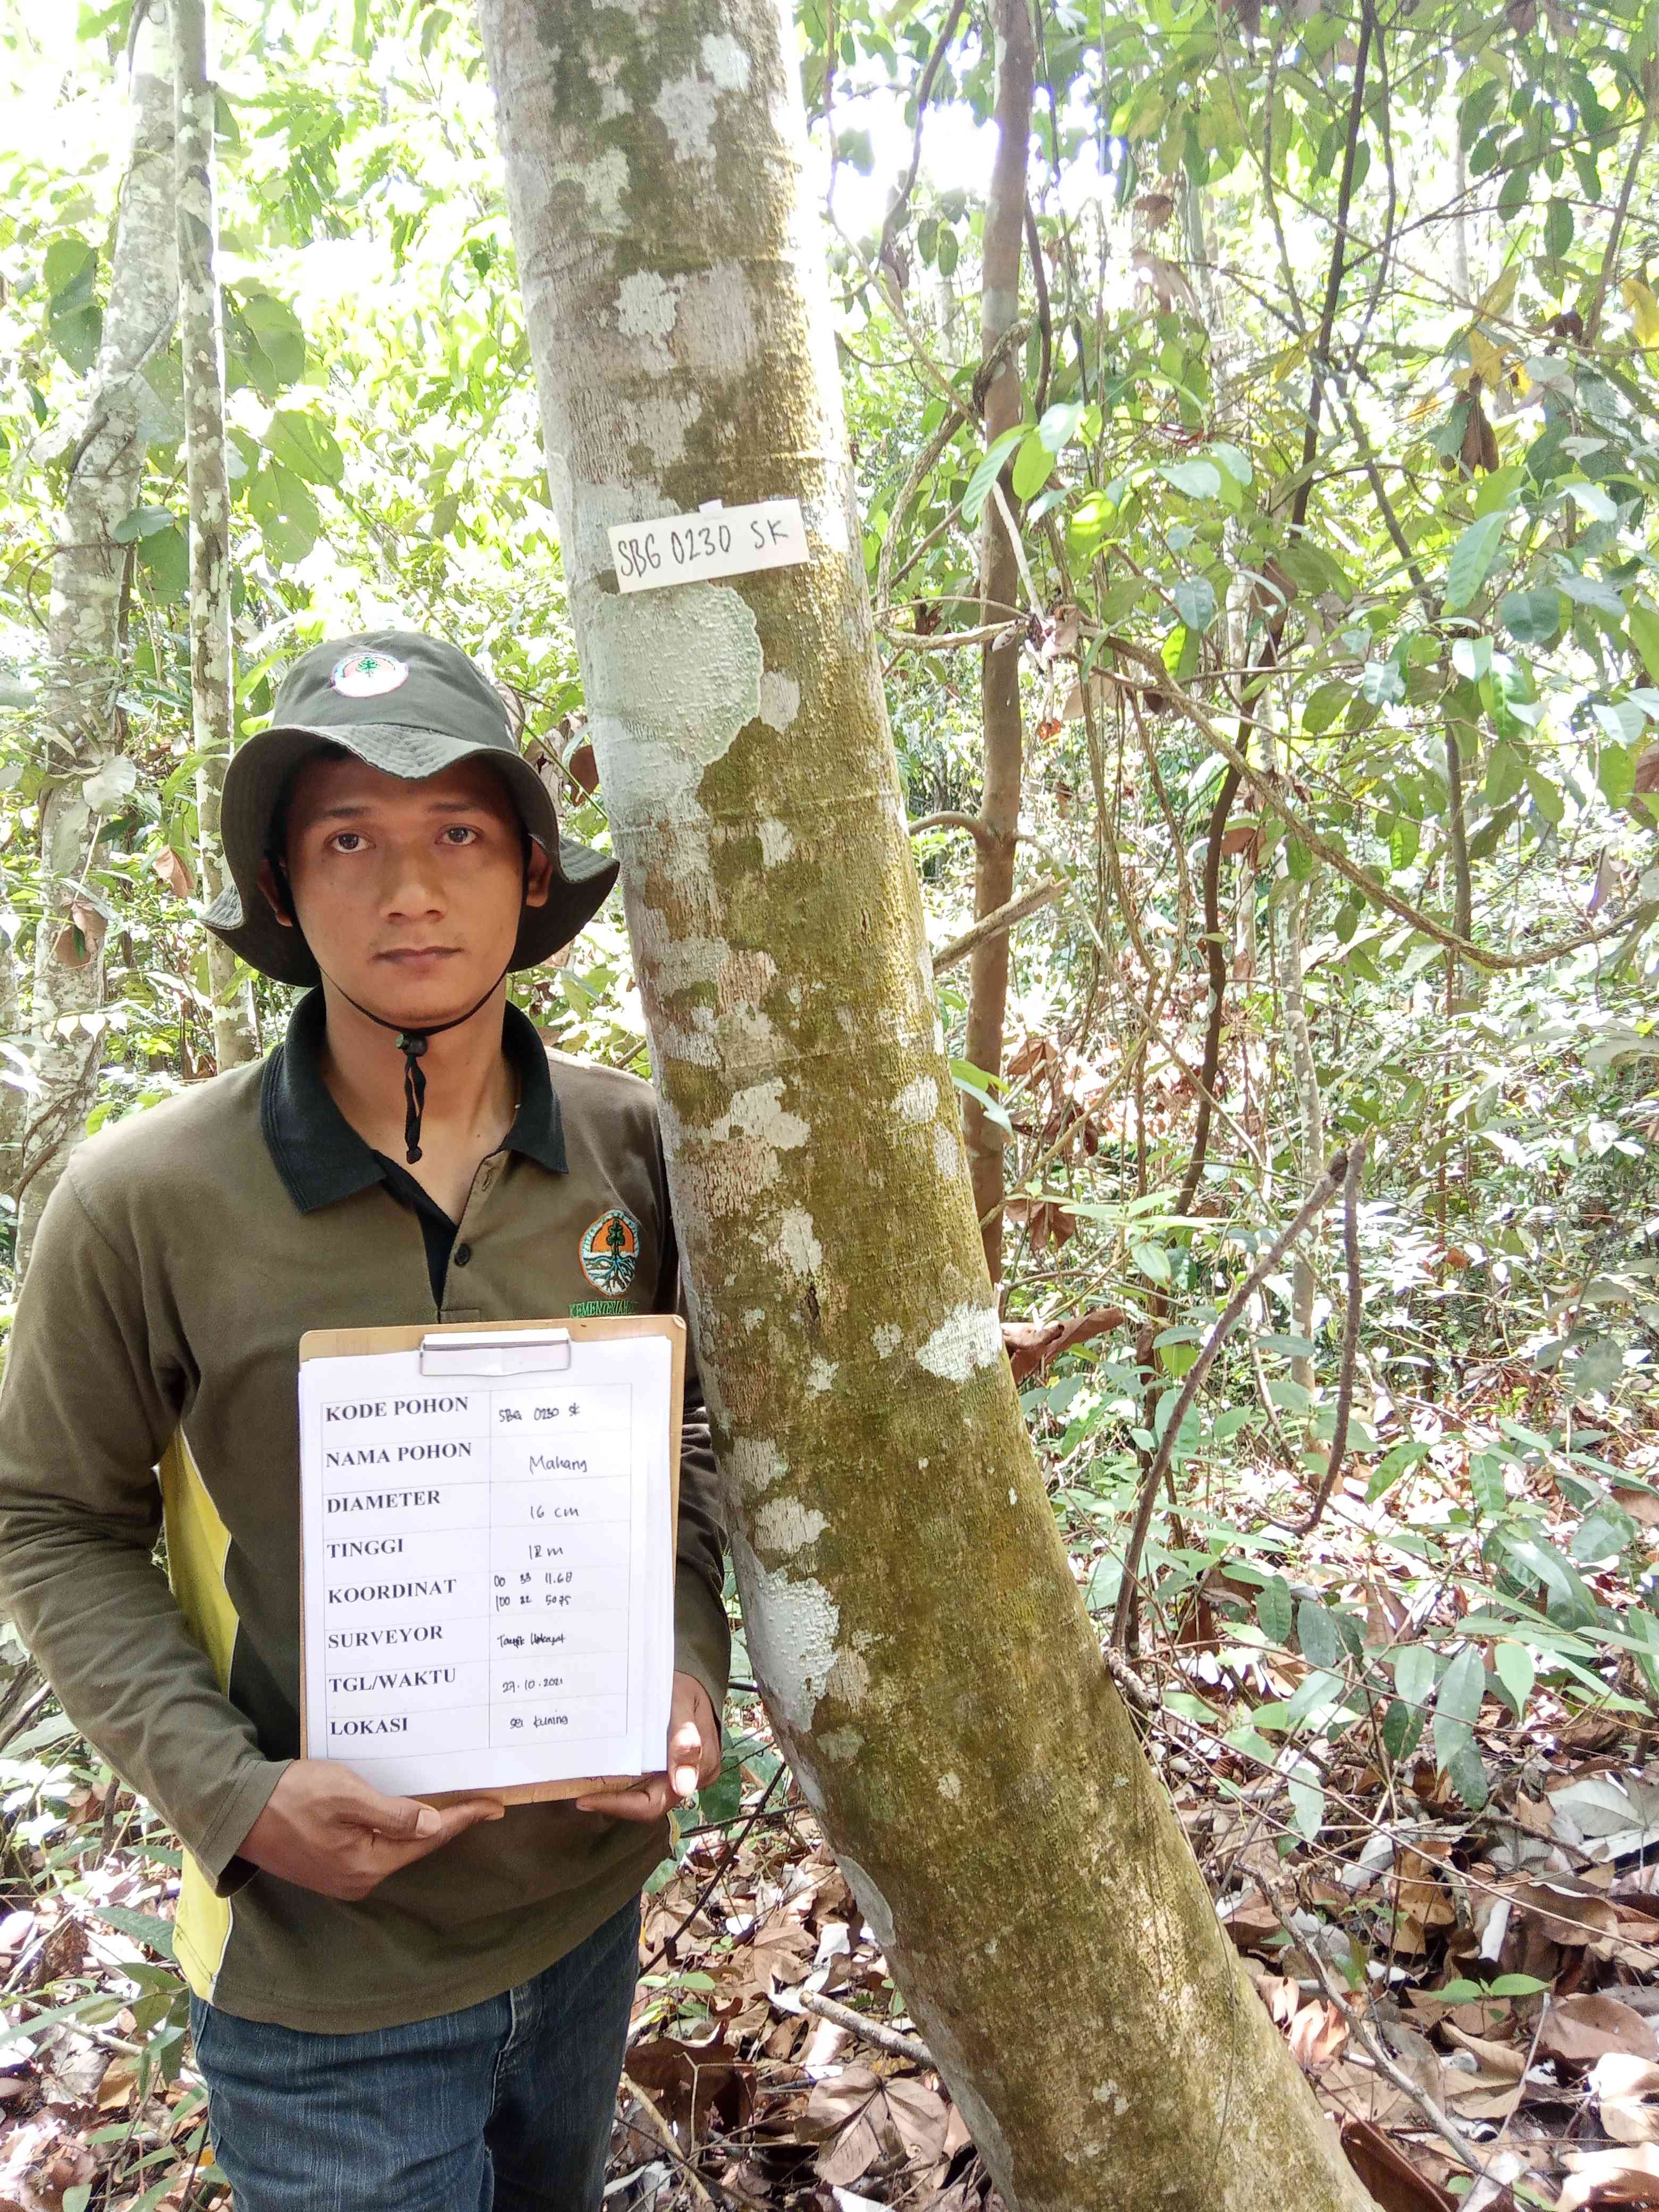 SBG 0230 SK
KEMENTERIAN
KODE POHON SBG 0230 SK
NAMA POHON Mahang
DIAMETER 16 cm
TINGGI 18 m
KOORDINAT 00 33 11.68
100 22 50.75
SURVEYOR
TGL/WAKTU 27.10.2021
LOKASI Sei Kuning